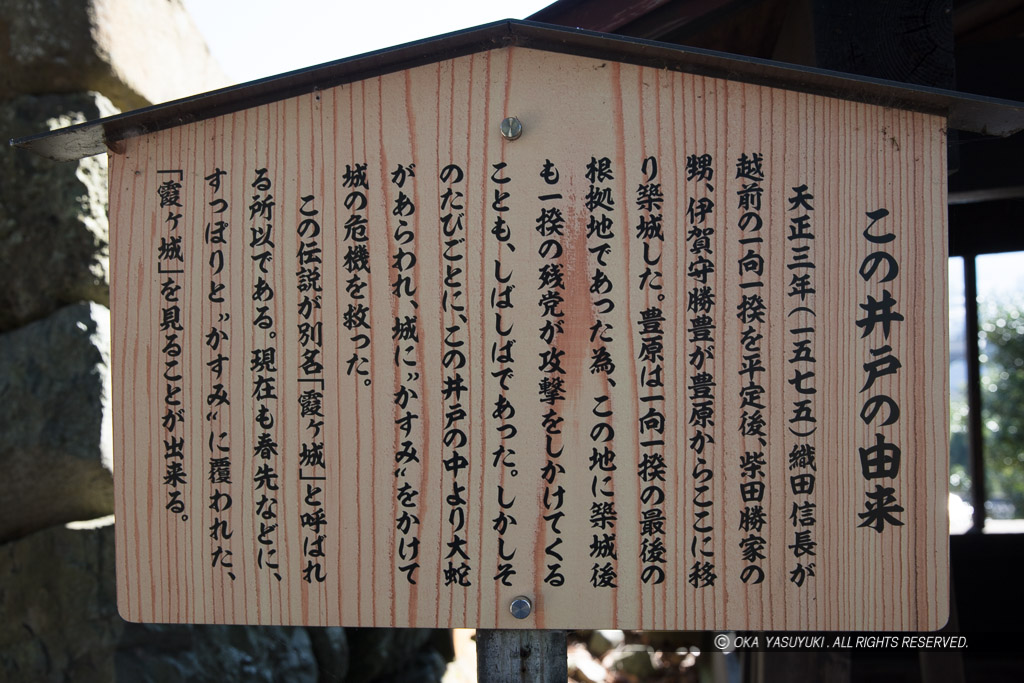 この井戸の由来
天正三年(一五七五)織田信長が
越前の一向一揆を平定後、柴田勝家の
甥、伊賀守勝豊が豊原からここに移
り築城した。豊原は一向一揆の最後の
根拠地であった為、この地に築城後
も一揆の残党が攻撃をしかけてくる
ことも、しばしばであった。しかしそ
のたびごとに、この井戸の中より大蛇
があらわれ、城に〝かすみ〟をかけて
城の危機を救った。
この伝説が別名「霞ヶ城」と呼ばれ
る所以である。現在も春先などに、
すっぽりと〝かすみ〟に覆われた、
「霞ヶ城」を見ることが出来る。
© OKA YASUYUKI. ALL RIGHTS RESERVED.